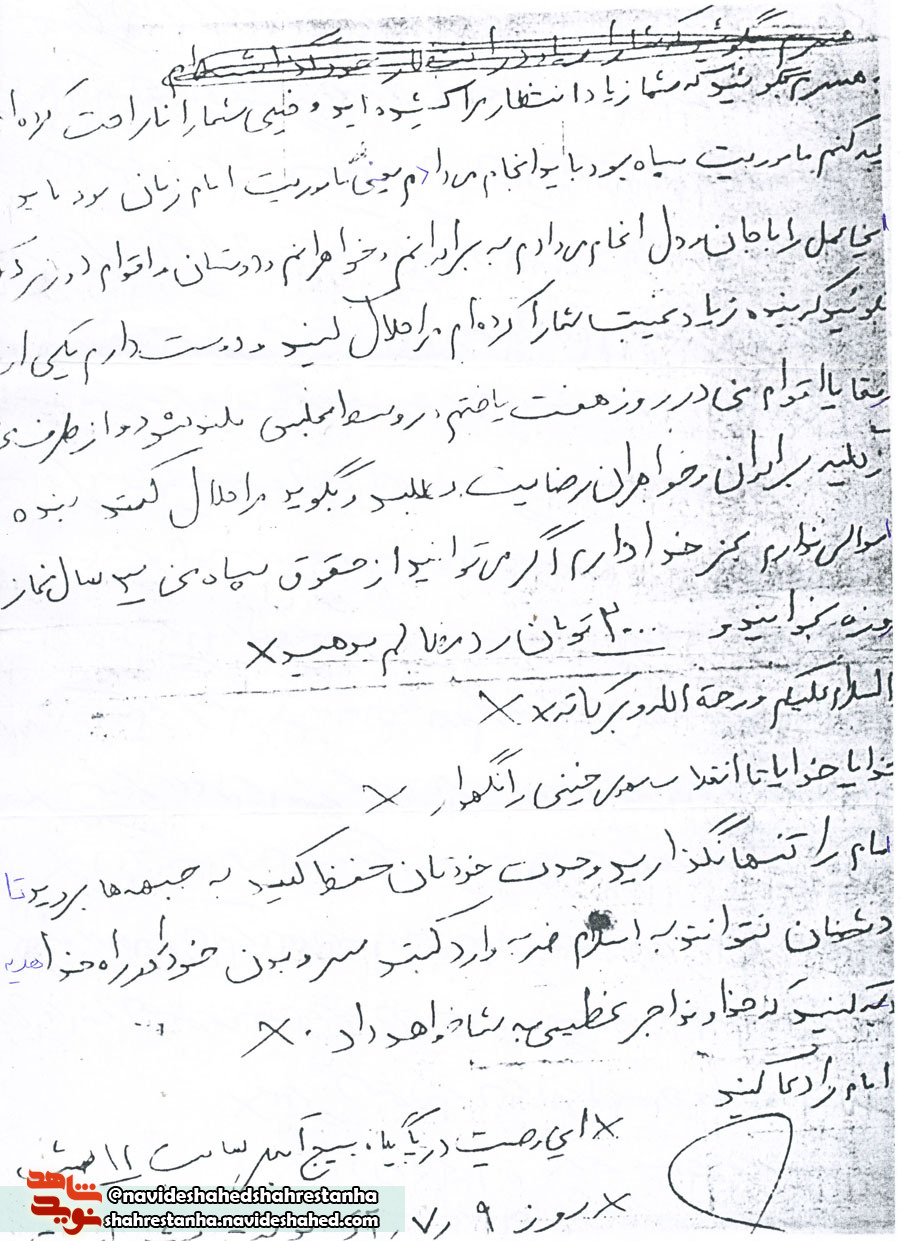 همسرم بگوئید که شما زیاد انتظار مرا کشیده اید و خیلی شما را ناراحت کرده ام
چه کنم ماموریت سپاه بود باید انجام می دادم یعنی ماموریت امام زمان بود باید
این عمل را با جان و دل انجام می دادم به برادرانم و خواهرانم و دوستان و اقوام دور
بگوئید که بنده زیاد غیبت شما را کرده ام مرا حلال کنید و دوست دارم یکی از
رفقا یا اقوام من در روز هفت یا ختم در وسط مجلس بلند شود و از طرف من
از کلیه برادران و خواهران رضایت بطلبد و بگوید مرا حلال کنند بنده
اموالی ندارم بجز خدا دارم اگر می توانید از حقوق سپاه من سال نماز
روزه بخوانید و تومان رد مظالم بدهید ×
السلام علیکم و رحمة الله و برکاته ××
خدایا خدایا تا انقلاب مهدی خمینی را نگهدار ×
امام را تنها نگذارید وحدت خودتان حفظ کنید به جبهه ها بروید تا
دشمنان نتوانند به اسلام ضربه وارد کنند سر و بدن خود را در راه خدا هدیه
کنید که خداوند اجر عظیمی به شما خواهد داد . ×
امام را دعا کنید
× این وصیت در پایگاه بسیج ساعت ۱۱
× روز ۹ ر ۷
شاهد
نوید
@navideshahedshahrestanha
shahrestanha.navideshahed.com